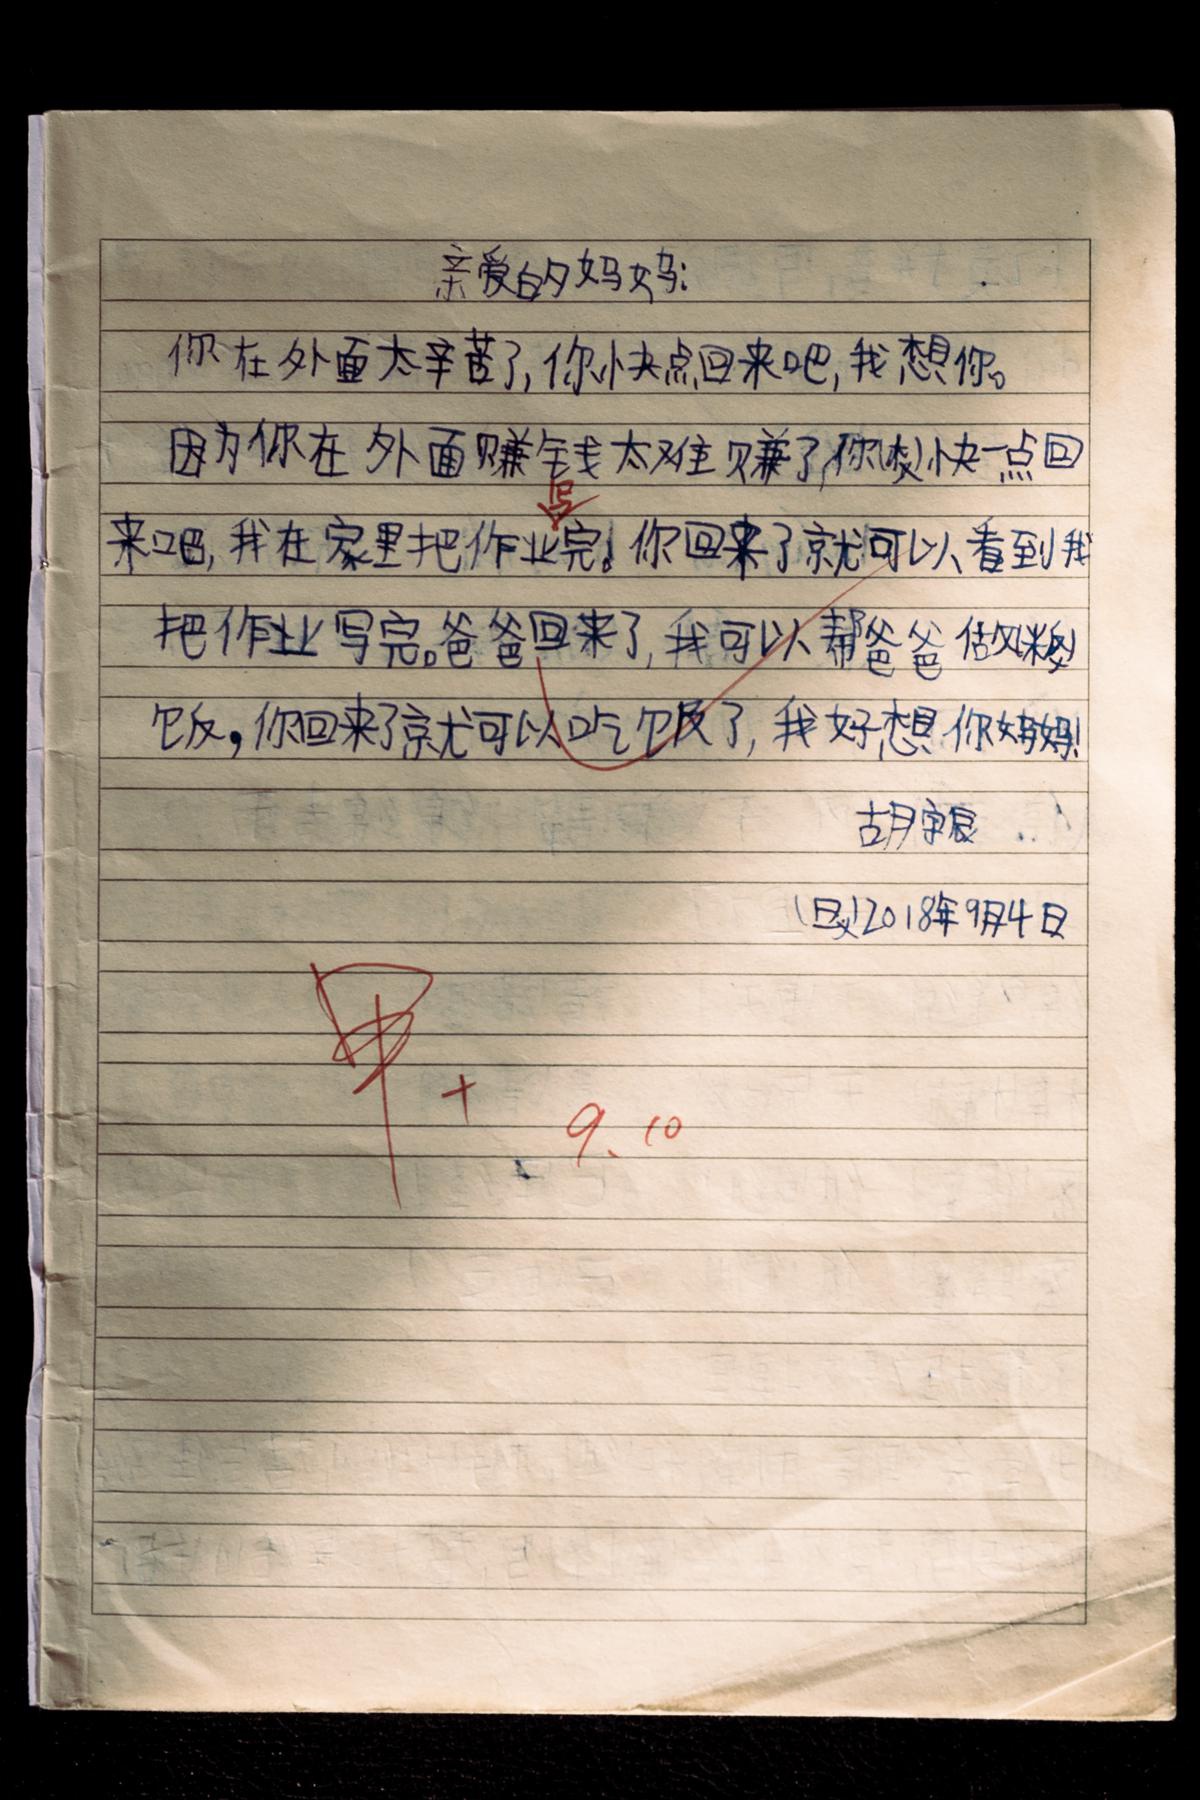 亲爱的妈妈:
你在外面太辛苦了,你快点回来吧,我想你。
因为你在外面赚钱太难赚了,你快一点回
写
来吧,我在家里把作业完!你回来了就可以看到我
把作业写完。爸爸回来了,我可以帮爸爸做
饭,你回来了就可以吃饭了,我好想你妈妈!
胡
2018年9月4日
甲+
9.10